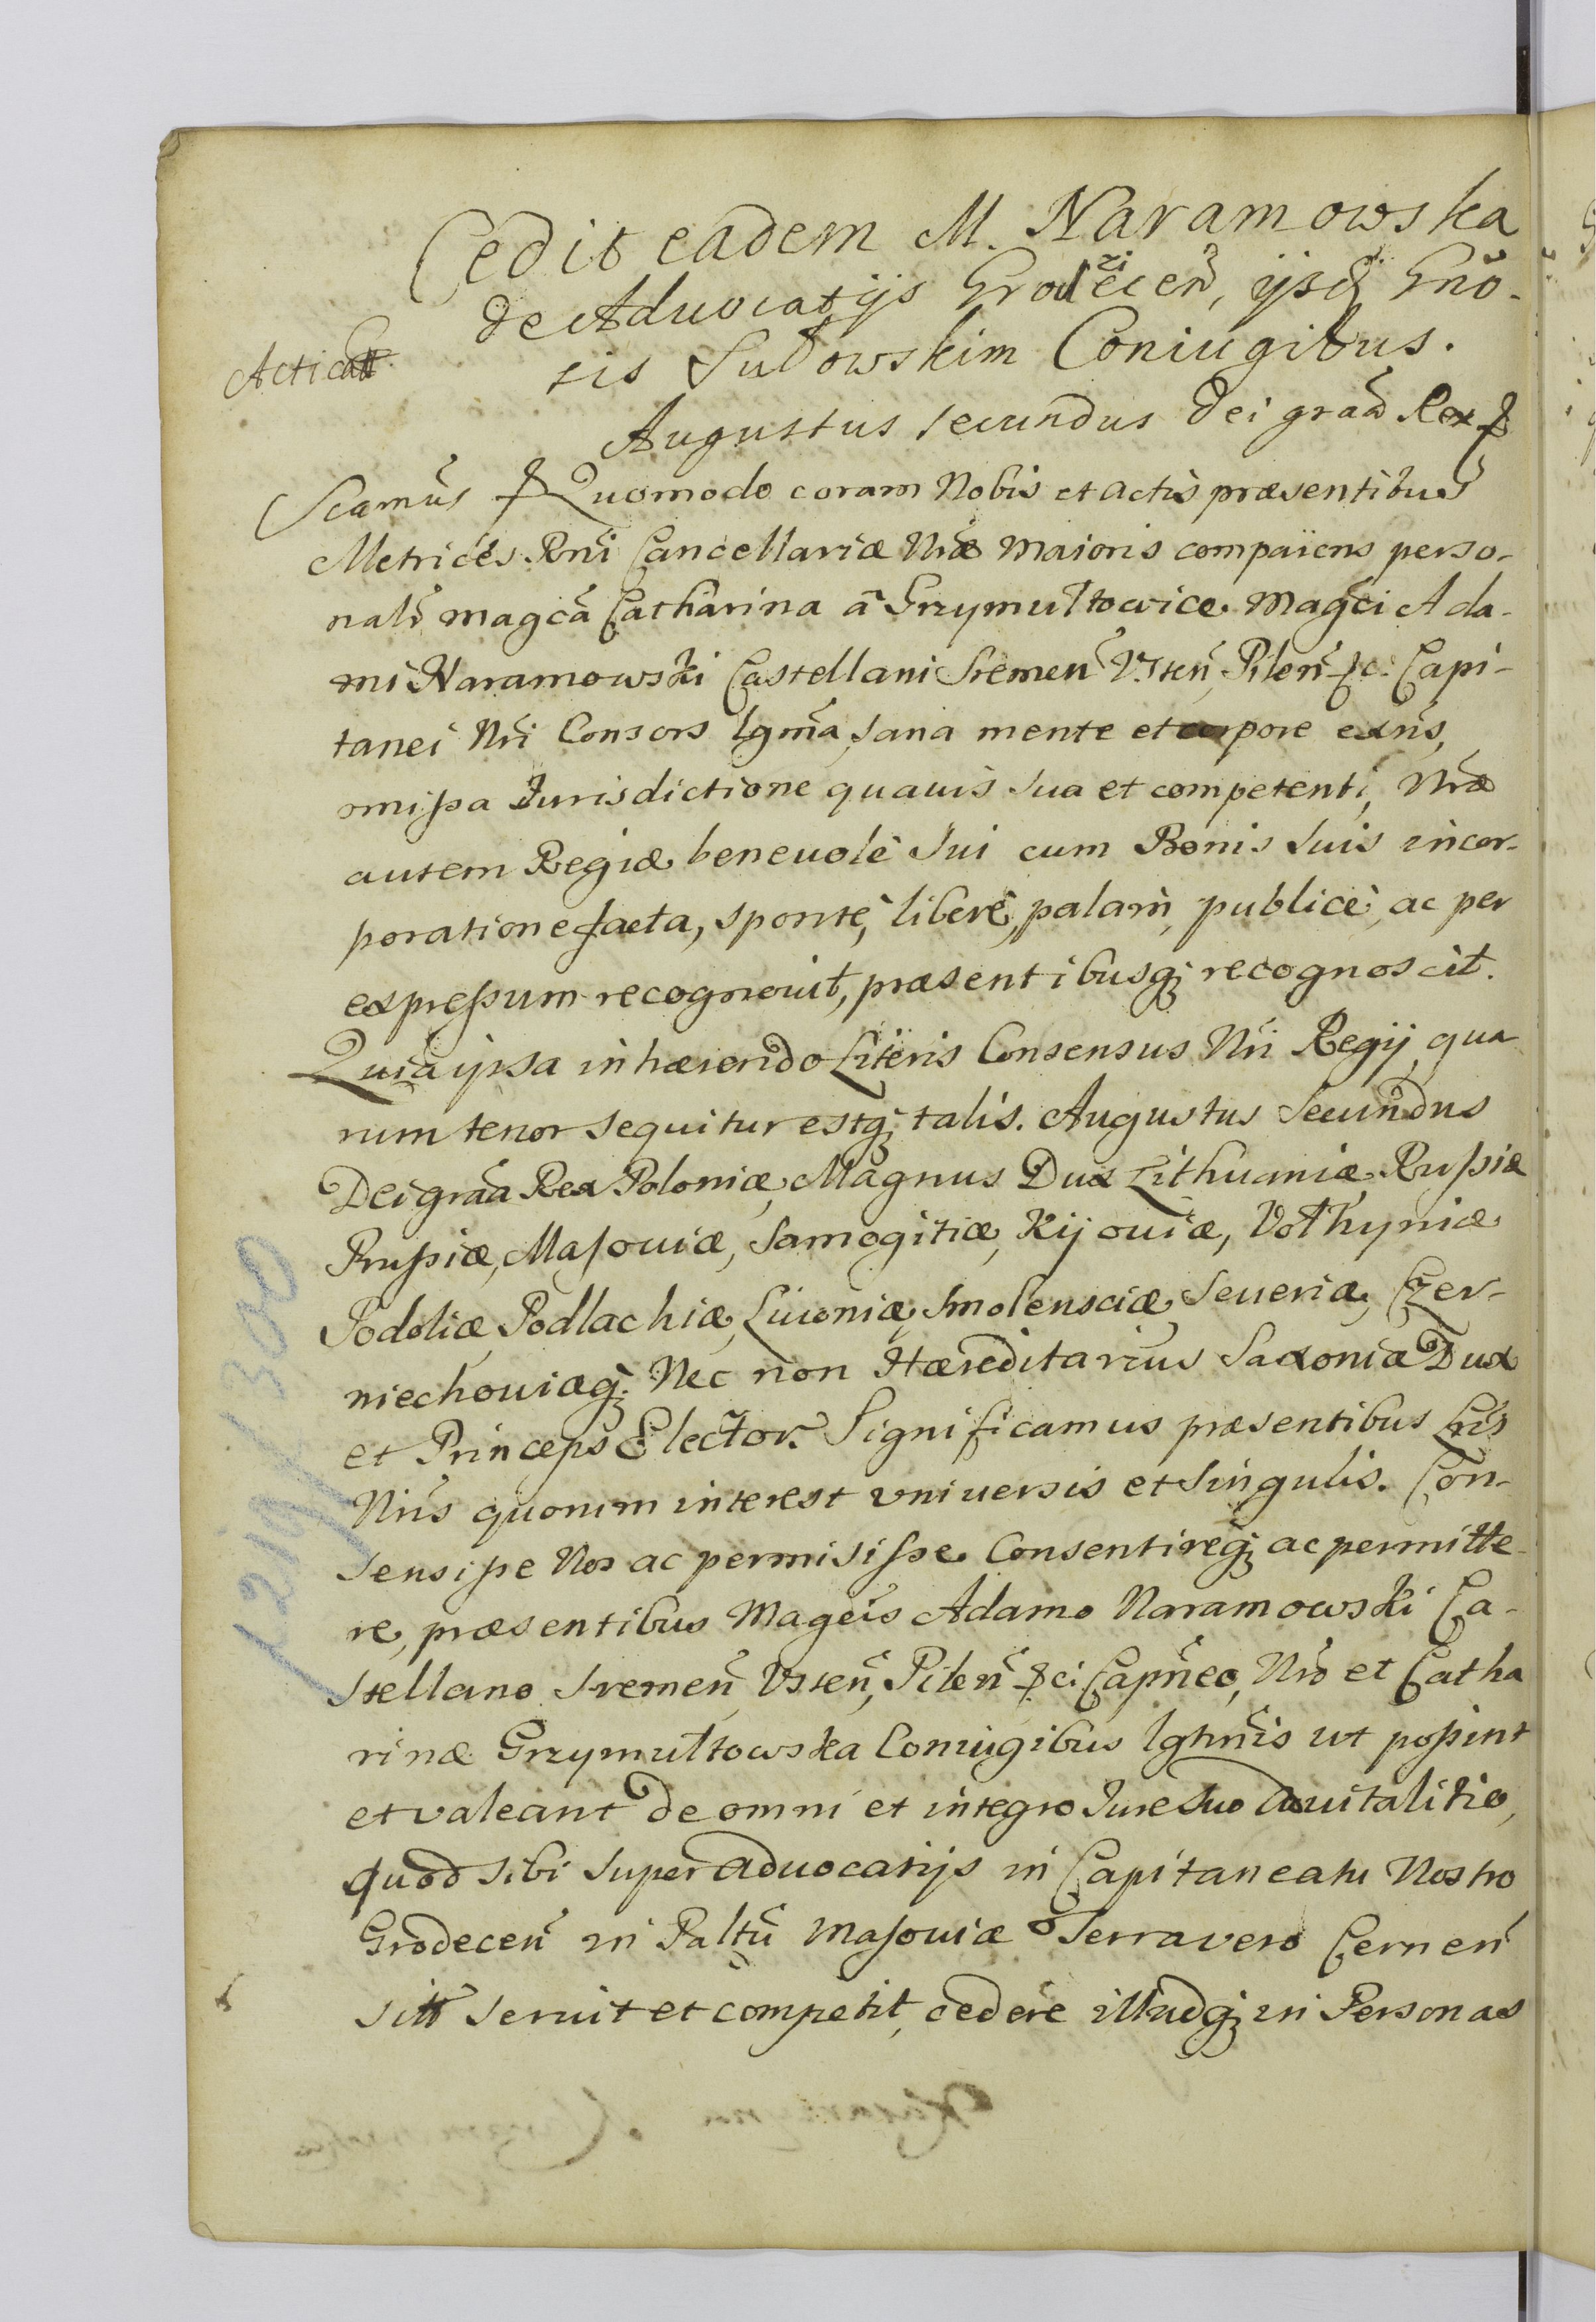 Cedit eadem M. Naramowska
de Aduocatijs Grodziecen̄, ijsd. Gn̄o-
sis Sułowskim Coniugibus.
Acticatt
Augustus secundus Dei grãa Rex &
Scamũs & Quomodo coram Nobis et actis præsentibus
Metrices Rn̄i Cancellariæ Nr̃æ Maioris compãrens perso-
nalr̃ magc̃a Catharina à Grzymułtowice Magc̃i Ada-
mi Naramowski Castellani Sremen̄ Vsten̄, Pilen̄ &c. Capi-
tanei Nr̃i Consors lgm̃a, sana mente et corpore exñs,
omißa Jurisdictione quauis sua et competenti, Nr̃æ
autem Regiæ beneuolè sui cum Bonis suis incor-
poratione facta, spontè, liberè, palam, publicè, ac per
expreßum recognouit, præsentibusq; recognoscit.
Quia ipsa inhærendo Literis Consensus Nr̃i Regij, qua
rum tenor sequitur estq; talis. Augustus Secundus
Dei grãa Rex Poloniæ, Magnus Dux Lithuaniæ, Rußiæ
Prußiæ, Masouiæ, Samogitiæ, Kijouiæ, Vołhyniæ
Podoliæ, Podlachiæ, Liuoniæ, Smolensciæ, Seueriæ, Czer-
niechouiæq; Nec non Hæreditarius Saxoniæ Dux
et Princeps Elector. Significamus præsentibus Lr̃is
Nr̃is quorum interest vniuersis et singulis. Con-
sensiße Nos ac permisiße Consentireq; ac permitte-
re, præsentibus Magc̃is Adamo Naramowski Ca-
stellano Sremen̄, Vsten̄, Pilen̄ &c: Capn̄eo, Nr̃o et Catha
rinæ Grzymułtowska Coniugibus lgtm̃is ut poßint
et valeant de omni et integro Jure suo aduitalitio,
quod sibi super aduocatijs in Capitaneatu Nostro
Grodecen̄ in Paltũ Masouiæ Terra vero Cernen̄
sitt seruit et competit, cedere illudq; in Personas
1219/300